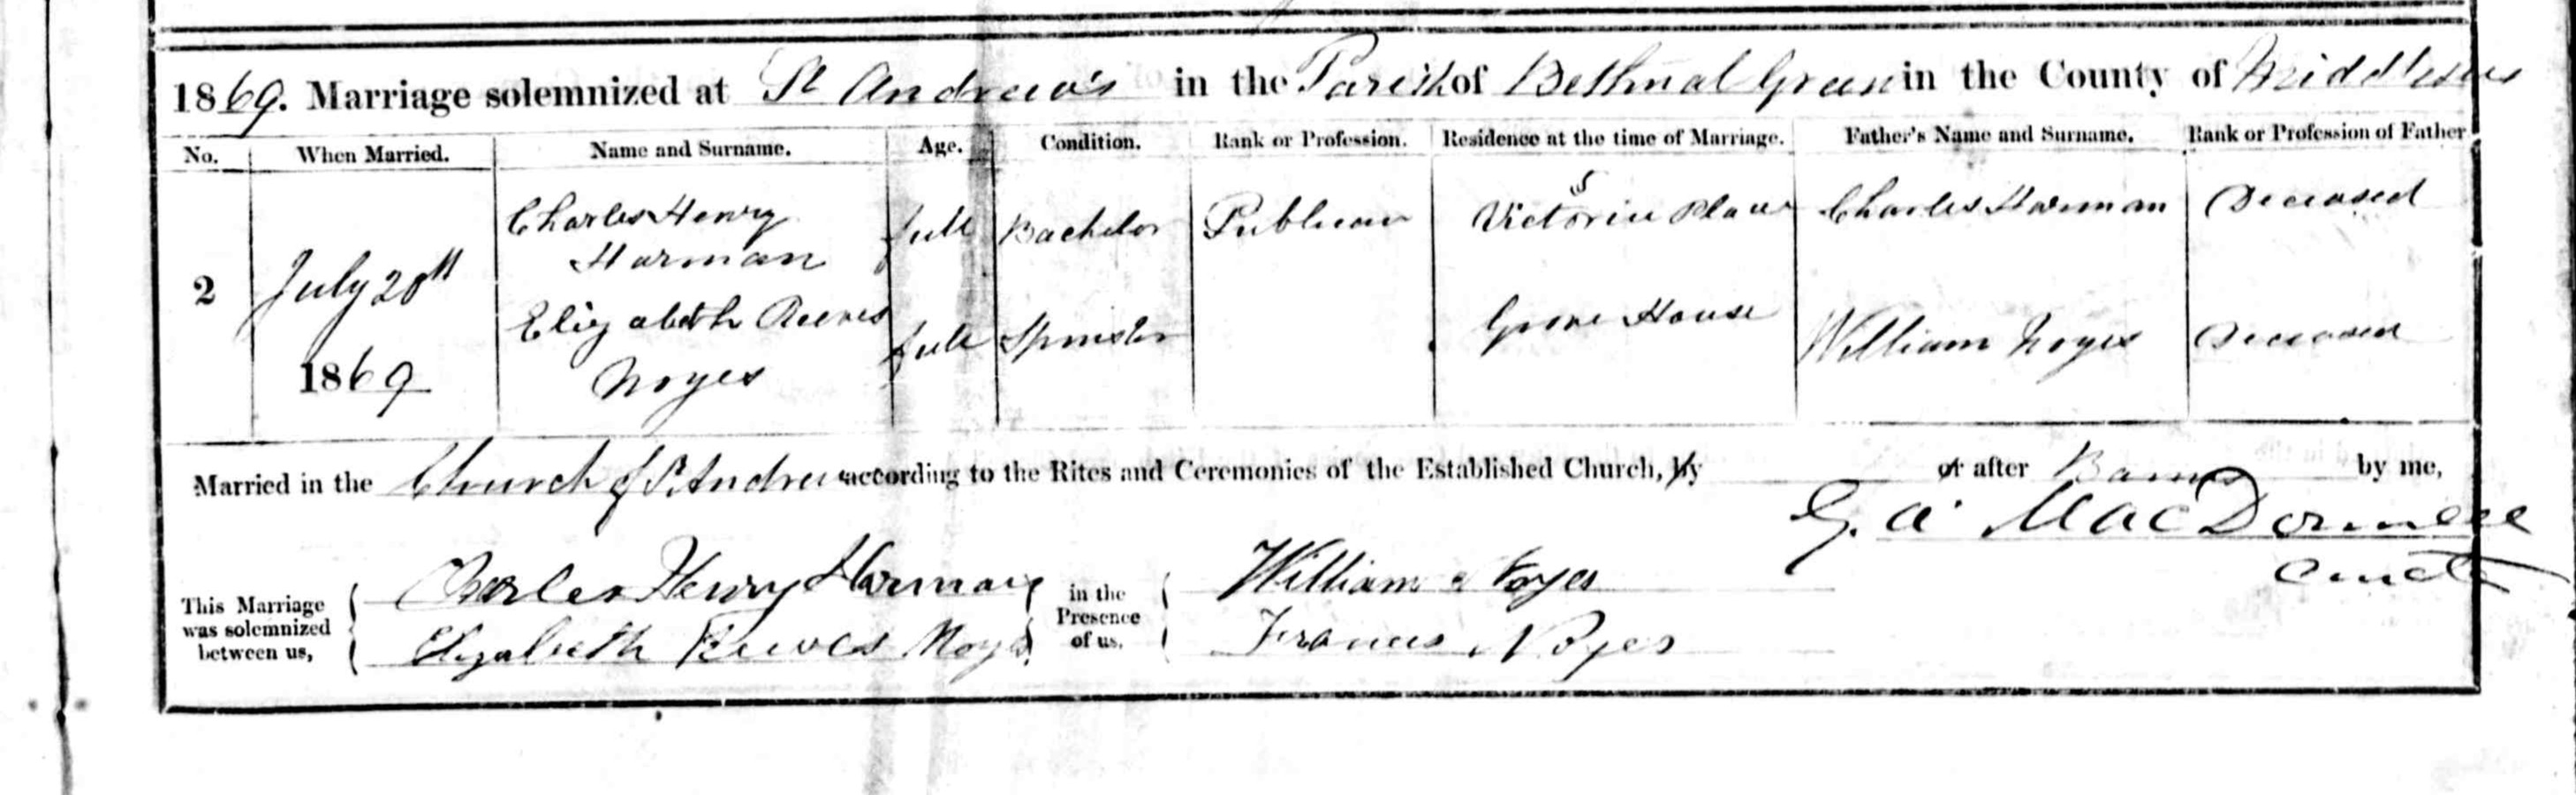 1869. Marriage solemnized at St Andrew's in the Parish of Bethnal Green in the County of Middlesex
No. When Married. Name and Surname. Age. Condition. Rank or Profession. Residence at the time of Marriage. Father's Name and Surname. Rank or Profession of Father
2 July 20th 1869
Charles Henry Harman full Bachelor Publican 5 Victoria Place Charles Harman Deceased
Elizabeth Reeves Noyes full Spinster Grove House William Noyes Deceased
Married in the Church of St. Andrew according to the Rites and Ceremonies of the Established Church, by or after Banns by me,
G. A. MacDonnell
Curate
This Marriage was solemnized between us,
Charles Henry Harman
Elizabeth Reeves Noyes
in the Presence of us,
William Noyes
Frances Noyes